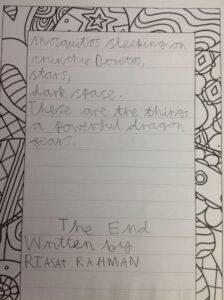 Mosquitos sleeping on
crunchy Doretos,
stars,
dark space.
These are the things
a powerful dragon
fears.
The End
Written by
RIASAT RAHMAN